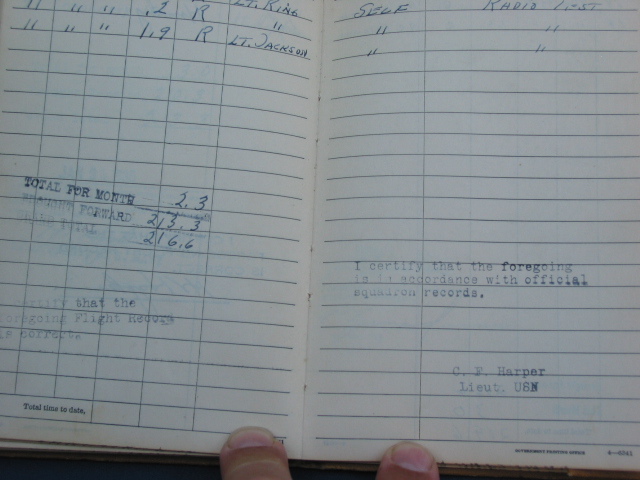 " " " .2 R LT. RING SELF RADIO TEST
" " " 1.9 R LT. JACKSON " "
TOTAL FOR MONTH 2.3
BROUGHT FORWARD 213.3
TOTAL 216.6
certify that the
foregoing Flight Record
is correct.
I certify that the foregoing
is in accordance with official
squadron records.
C. F. Harper
Lieut. USN
Total time to date,
GOVERNMENT PRINTING OFFICE 4—6041